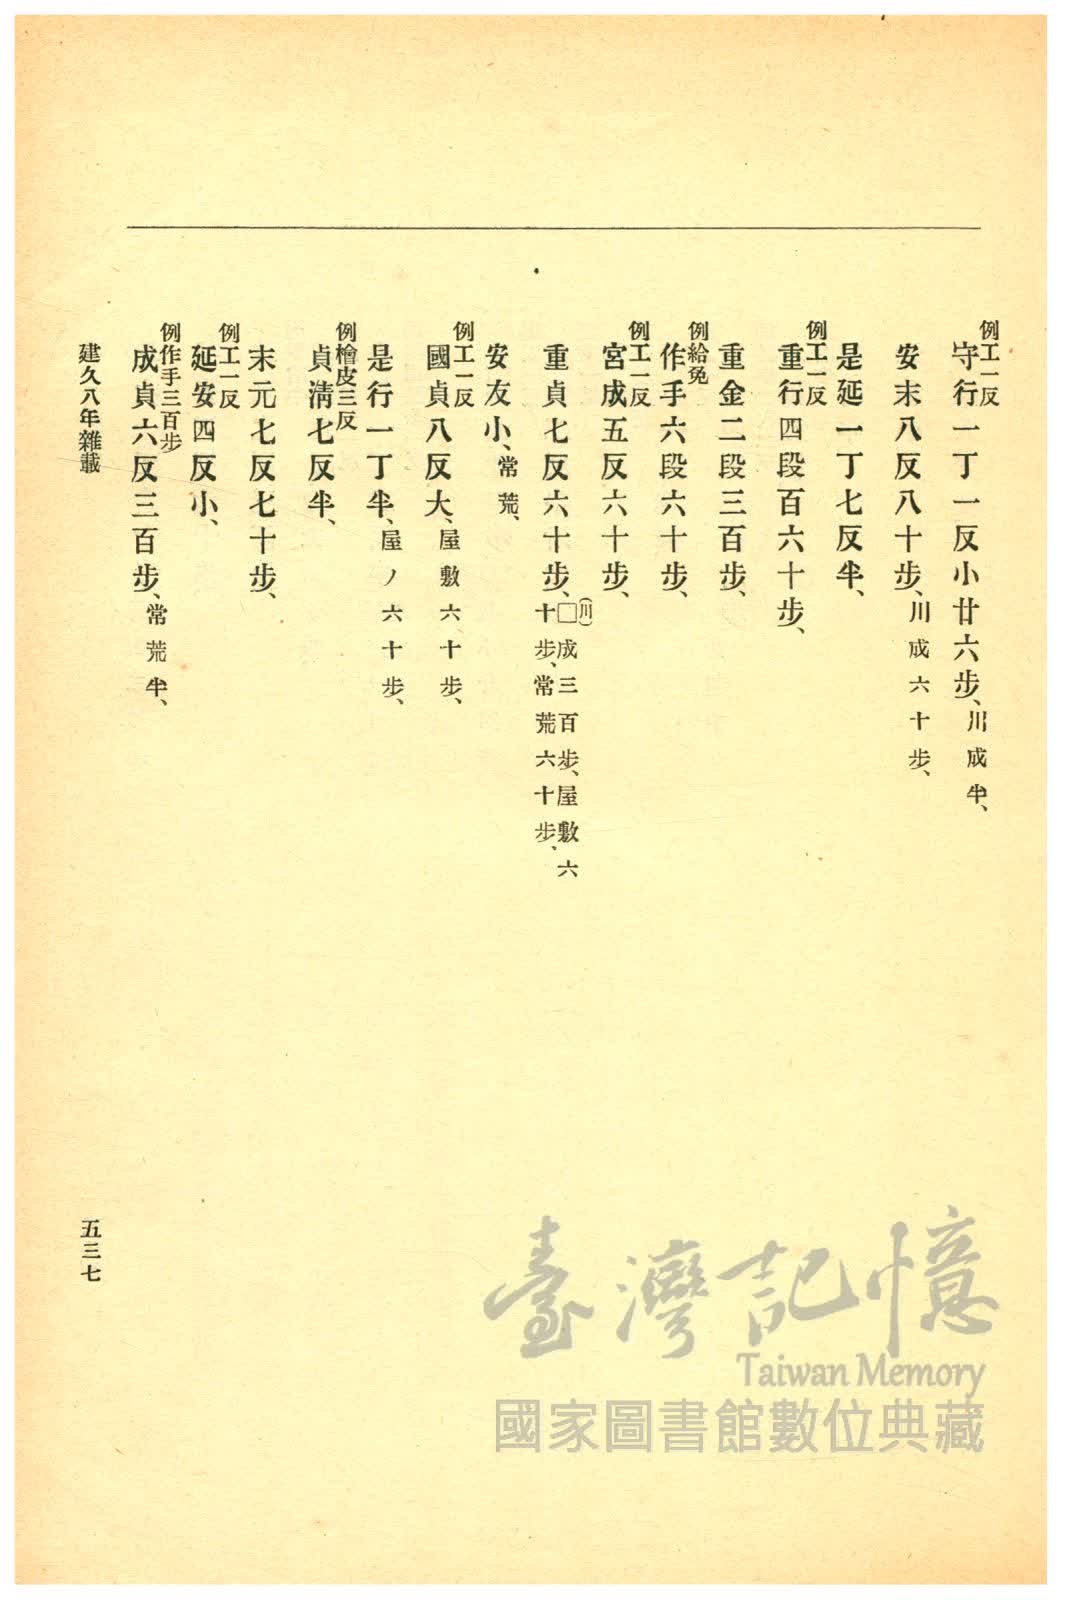 例工一反
守行一丁一反小廿六步、川成半、
安末八反八十步、川成六十步、
是延一丁七反半、
例工一反
重行四段百六十步、
重金二段三百步、
例給免
作手六段六十步、
例工一反
宮成五反六十步、
重貞七反六十步、
(川)
□成三百步、屋敷六
十步、常荒六十步、
安友小、常荒、
例工一反
國貞八反大、屋敷六十步、
是行一丁半、屋ノ六十步、
例檜皮三反
貞淸七反半、
末元七反七十步、
例工一反
延安四反小、
例作手三百步
成貞六反三百步、常荒半、
建久八年雜載
五三七
臺灣記憶
Taiwan Memory
國家圖書館數位典藏